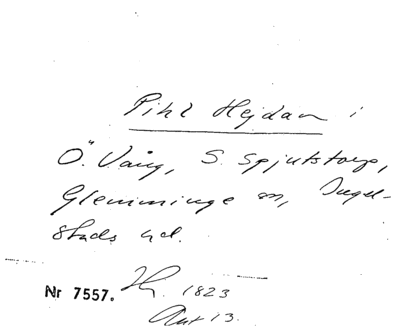 Pihl Hejdan i
Ö. Vång, S. Spjutstorp,
Glemminge sn, Ingel-
stads hd.
Nr 7557. 1823
Akt 13.